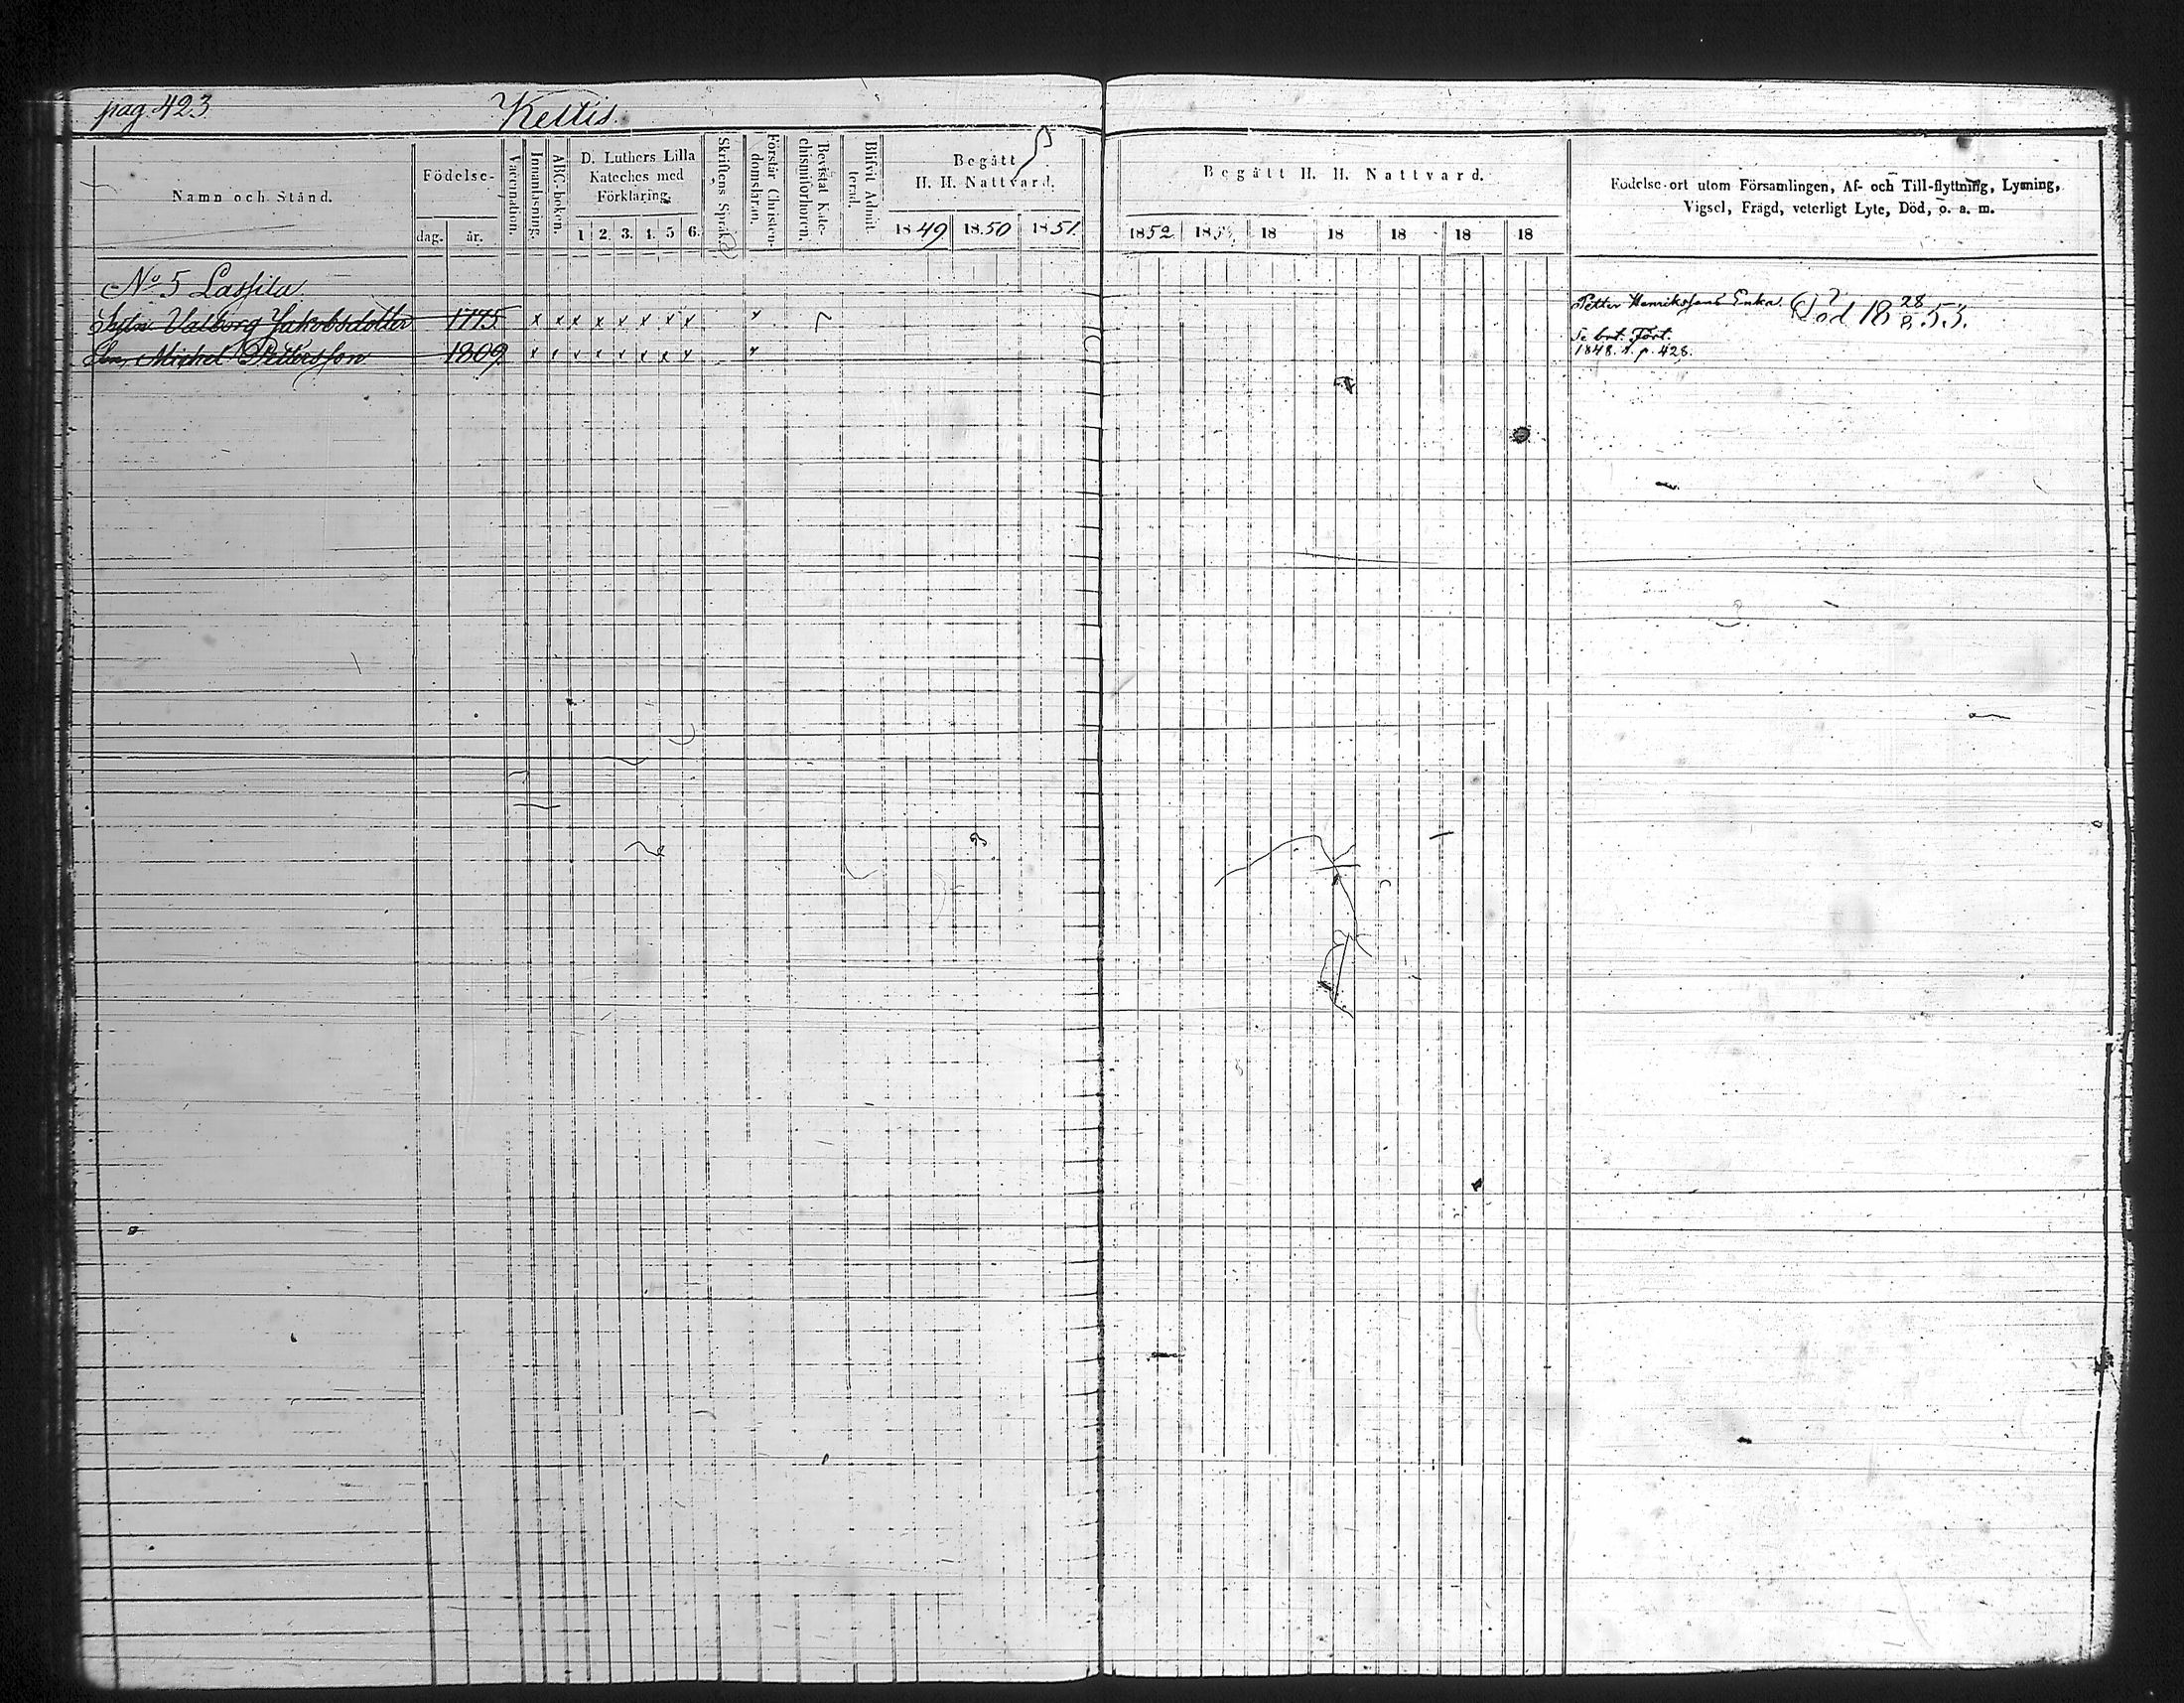 pag. 423 Kettis.
Namn och Stånd.
Födelse-
dag. år.
Vaccination.
Innanläsning.
ABC-boken.
D. Luthers Lilla
Kateches med
Förklaring.
1 2. 3. 4. 5 6.
Skriftens Språk.
Förstår Christen-
domsläran.
Bevistat Kate-
chismiförhören.
Blifvit Admit-
terad.
Begått
H. H. Nattvard.
1849 1850 1851.
Begått H. H. Nattvard.
1852. 185 18 18 18 18 18
Födelse-ort utom Församlingen, Af- och Till-flyttning, Lysning,
Vigsel, Frägd, veterligt Lyte, Död, o. a. m.
No 5 Lassila
Valborg Jakobsdotter 1775 x x x x x x x x x Petter Henrikssons Enka. Död 18 28/8 53.
Michel Pettersson 1809 x x x x x x x x x Se
1848. p. 428.